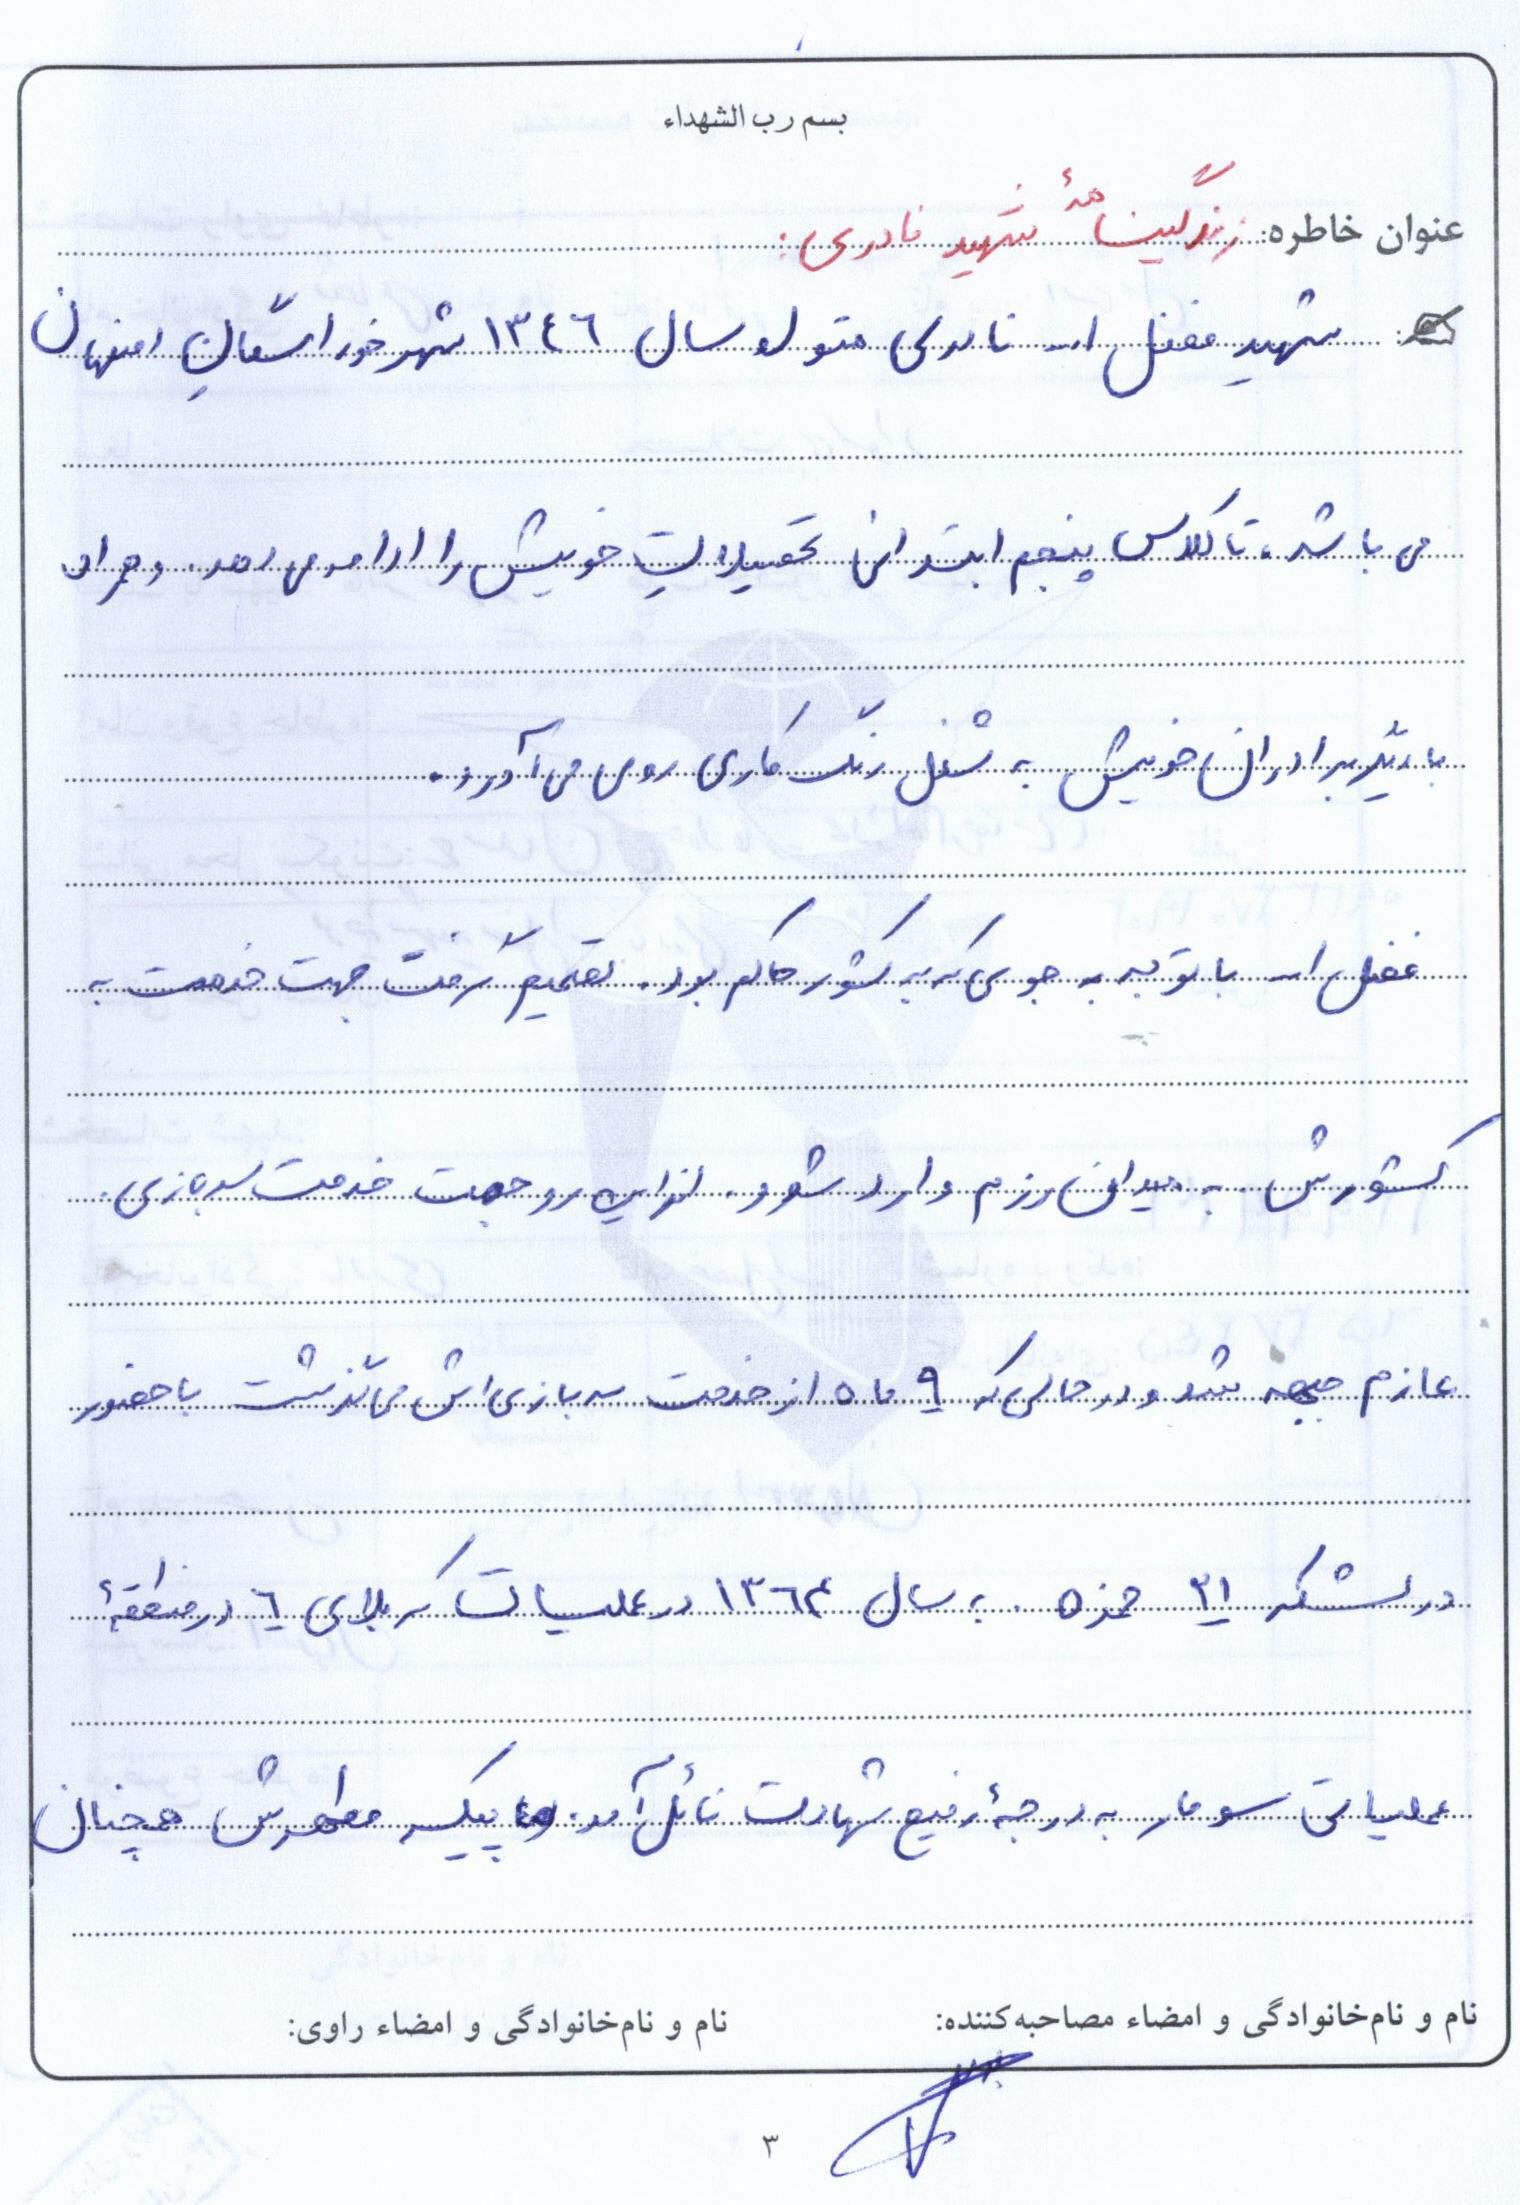 بسم رب الشهداء
عنوان خاطره: زندگینامهٔ شهید نادری:
شهید فضل اله نادری متولد سال ۱۳۴۶ شهر خوراسگان اصفهان
می باشد، تا کلاس پنجم ابتدائی تحصیلات خویش را ادامه می دهد. و همراه
با دیگر برادران خویش به شغل رنگ کاری روی می آورد.
فضل اله با توجه به جوی که به کشور حاکم بود. تصمیم گرفت جهت خدمت به
کشورش به میدان رزم وارد شود. از این رو جهت خدمت سربازی.
عازم جبهه شد و در حالی که ۹ ماه از خدمت سربازی اش می گذشت با حضور
در لشکر ۲۱ حمزه به سال ۱۳۶۴ در عملیات کربلای ۶ در منطقهٔ
عملیاتی سومار به درجهٔ رفیع شهادت نائل آمد. پیکر مطهرش همچنان
نام و نام‌خانوادگی و امضاء مصاحبه‌کننده: نام و نام‌خانوادگی و امضاء راوی:
۳